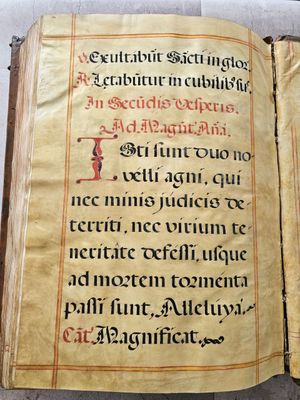 ℣. Exultabũt Sãcti in glor
℟. Letabũtur in cubilib⁹ suis
In Secũdis Vesperis.
Ad Magũt. Aña.
Isti sunt duo no-
velli agni, qui
nec minis judicis de-
territi, nec virium te-
neritate defessi, usque
ad mortem tormenta
passi sunt, Alleluya.
Cãt. Magnificat.